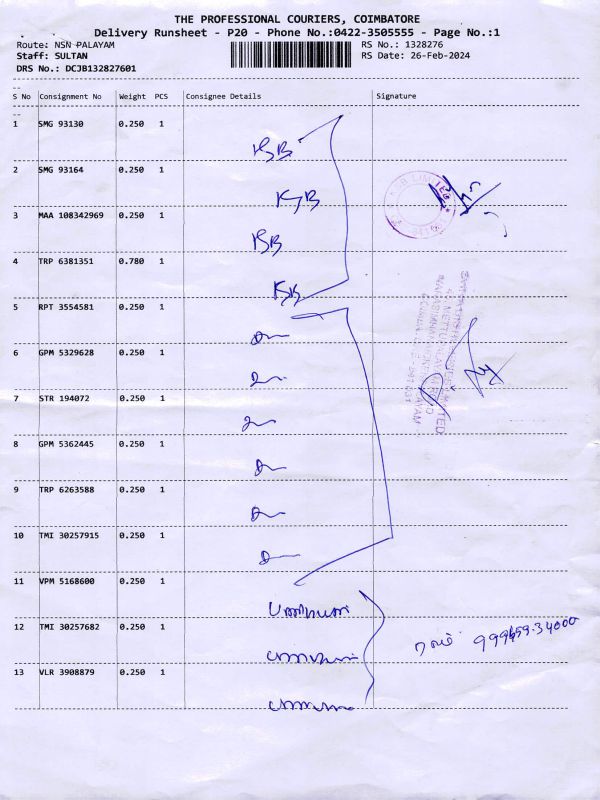 THE PROFESSIONAL COURIERS, COIMBATORE
Delivery Runsheet - P20 - Phone No.:0422-3505555 - Page No.:1
Route: NSN PALAYAM RS No.: 1328276
Staff: SULTAN RS Date: 26-Feb-2024
DRS No.: DCJB132827601
S No Consignment No Weight PCS Consignee Details Signature
1 SMG 93130 0.250 1
KSB
2 SMG 93164 0.250 1
KSB
3 MAA 108342969 0.250 1
KSB
4 TRP 6381351 0.780 1
KSB
5 RPT 3554581 0.250 1
6 GPM 5329628 0.250 1
7 STR 194072 0.250 1
8 GPM 5362445 0.250 1
9 TRP 6263588 0.250 1
10 TMI 30257915 0.250 1
11 VPM 5168600 0.250 1
12 TMI 30257682 0.250 1
13 VLR 3908879 0.250 1